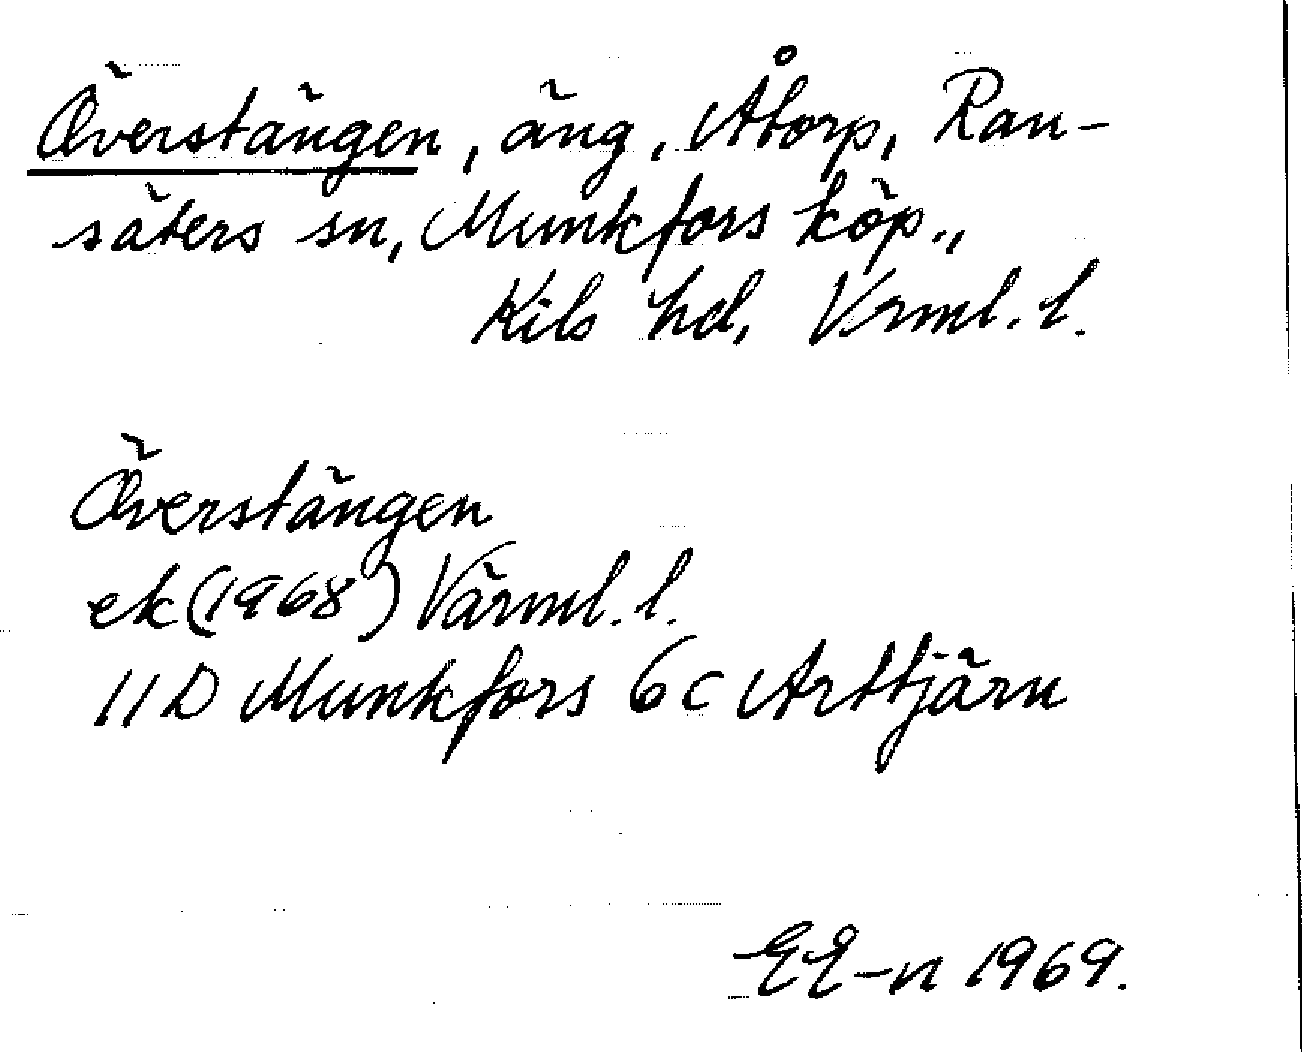 Överstängen, äng, Åtorp, Ran-
säters sn, Munkfors köp.,
Kils hd, Vrml. l.
Överstängen
ek (1968) Värml. l.
11D Munkfors 6c Arttjärn
EE-n 1969.